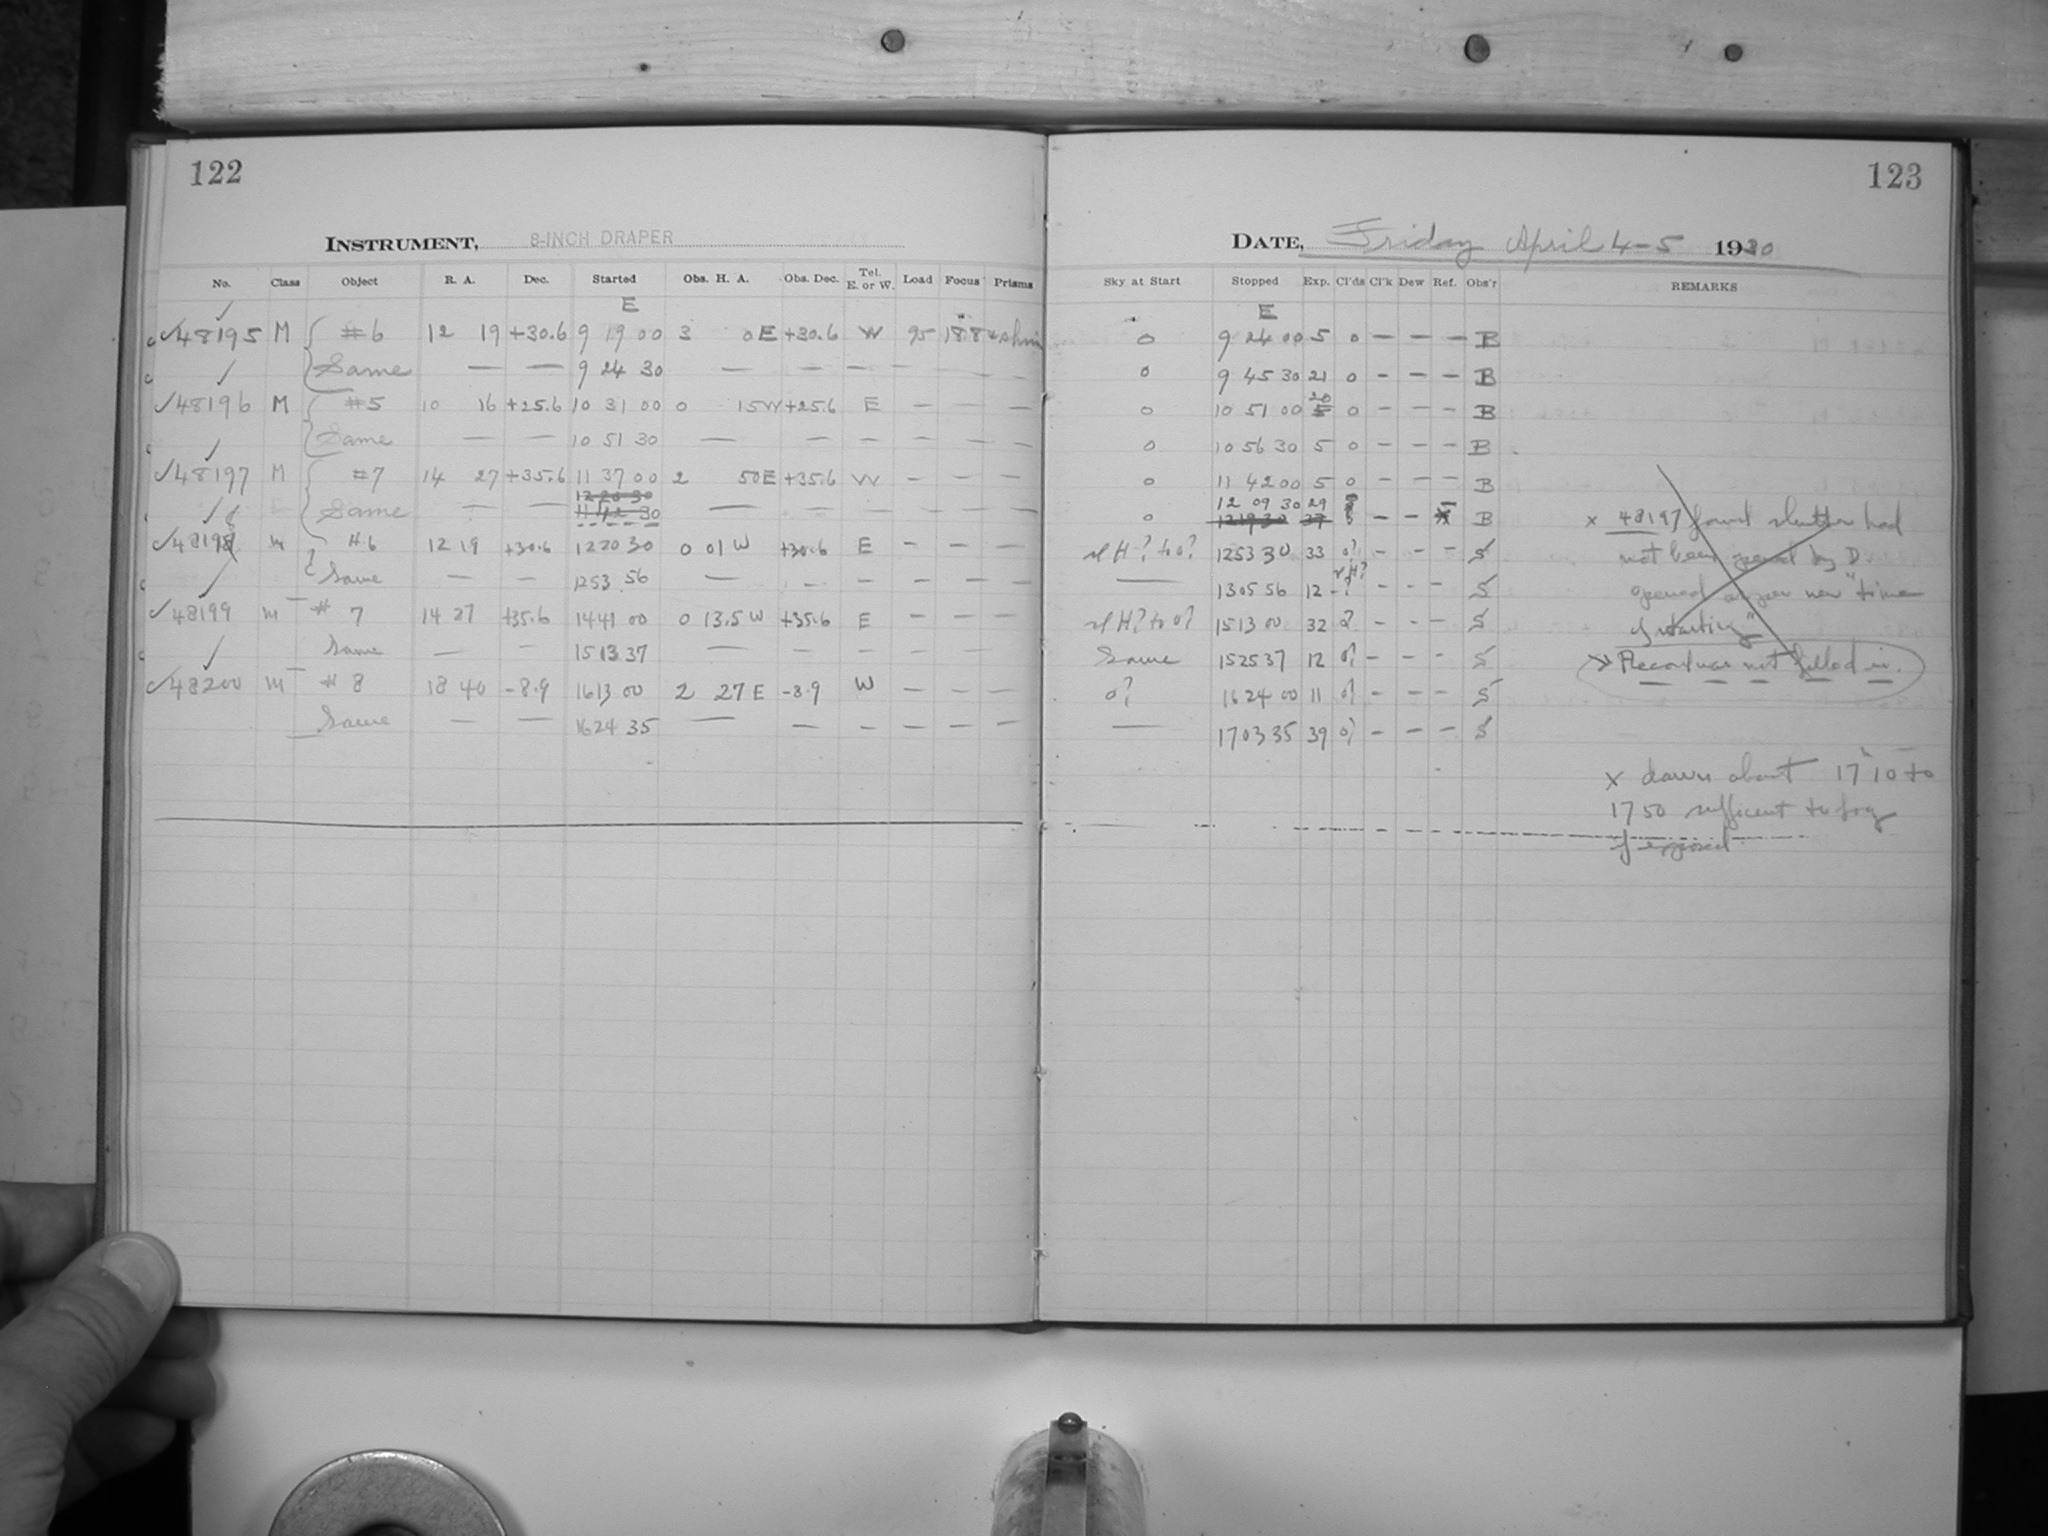 122
123
INSTRUMENT, 8-INCH DRAPER
DATE, Friday April 4-5 1930
No. Class Object R. A. Dec. Started Obs. H. A. Obs. Dec. Tel. E. or W. Load Focus Prisms Sky at Start Stopped Exp. Cl'ds Cl'k Dew Ref. Obs'r REMARKS
E E
48195 M #6 12 19 +30.6 9 19 00 3 0E +30.6 W 95 18.8 0 9 24 00 5 0 — — — B
Same — — 9 24 30 — — — — — — 0 9 45 30 21 0 - - - B
48196 M #5 10 16 +25.6 10 31 00 0 15W +25.6 E — — — 0 10 51 00 20 0 - - - B
Same — — 10 51 30 — — — — — — 0 10 56 30 5 0 - - - B
48197 M #7 14 27 +35.6 11 37 00 2 50E +35.6 W — — — 0 11 42 00 5 0 - - - B
12 20 30
Same — — 11 42 30 — — — — — — 0 12 09 30 29 - - B
12 19 30 37
48198 M #6 12 19 +30.6 12 20 30 0 01 W +30.6 E — — — sl H? to 0? 12 53 30 33 0? - - - S
Same — — 12 53 56 — — — — — — — 13 05 56 12 - - - S
48199 M #7 14 27 +35.6 14 41 00 0 13.5 W +35.6 E — — — sl H? to 0? 15 13 00 32 - - - S
Same — — 15 13 37 — — — — — — Same 15 25 37 12 0? - - - S
48200 M #8 18 40 -8.9 16 13 00 2 27 E -8.9 W — — — 0? 16 24 00 11 0? - - - S
Same — — 16 24 35 — — — — — — — 17 03 35 39 0? - - - S
x 48197 found shutter had
not been opened by D.
opened as per new "time
of starting"
Record was not filled in.
x dawn about 17 10 to
17 50 sufficent to fog
if exposed